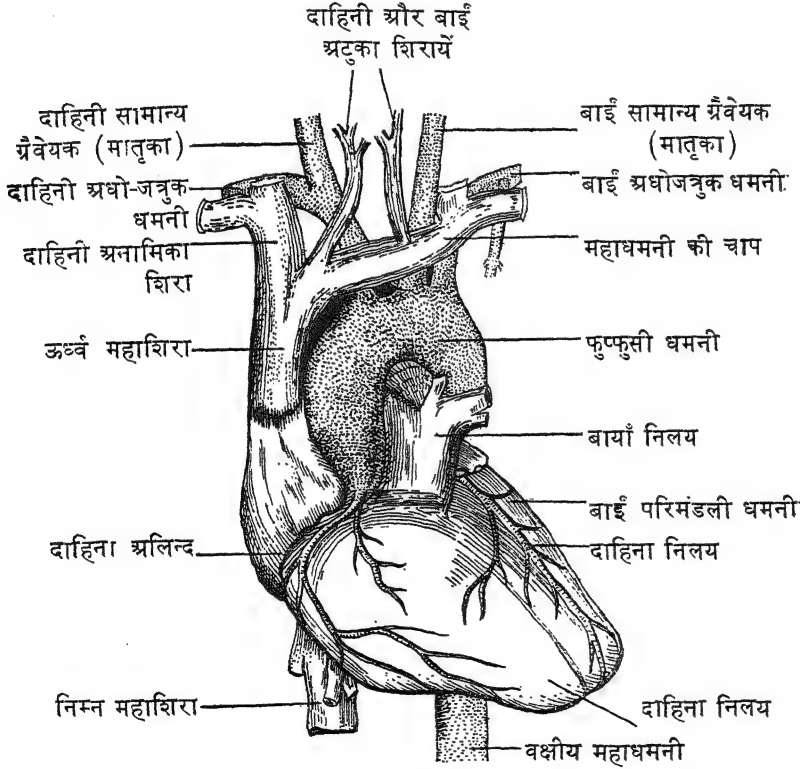 दाहिनी और बाईं
अटुका शिरायें
दाहिनी सामान्य
ग्रैवेयक (मातृका)
दाहिनी अधो-जत्रुक
धमनी
दाहिनी अनामिका
शिरा
ऊर्ध्व महाशिरा
दाहिना अलिन्द
निम्न महाशिरा
बाईं सामान्य ग्रैवेयक
(मातृका)
बाईं अधोजत्रुक धमनी
महाधमनी की चाप
फुप्फुसी धमनी
बायाँ निलय
बाईं परिमंडली धमनी
दाहिना निलय
दाहिना निलय
वक्षीय महाधमनी